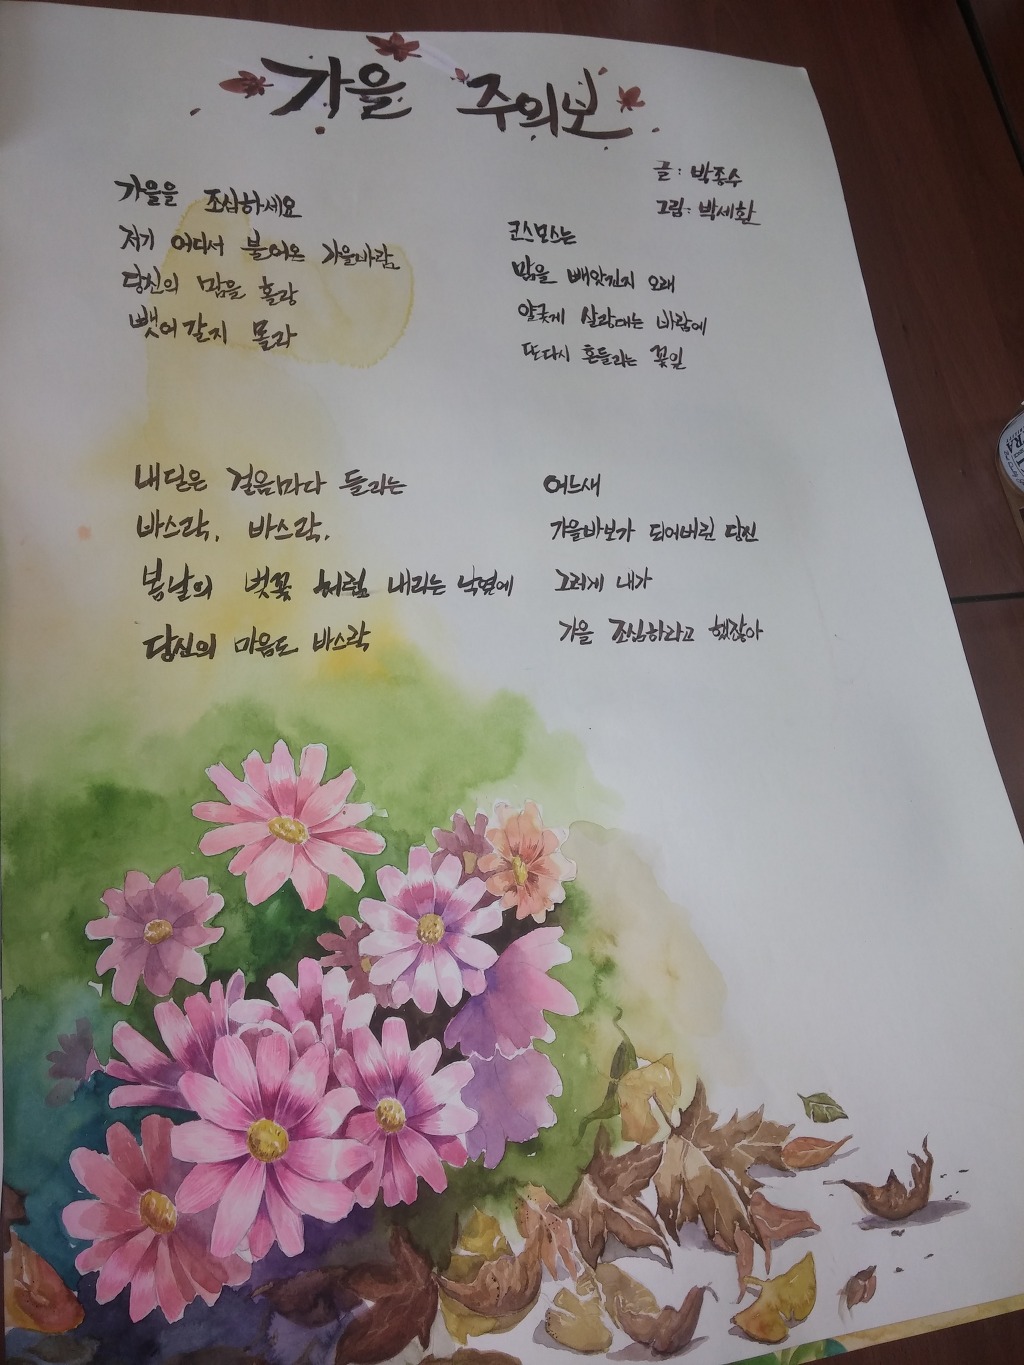 가을 주의보
글: 박종수
그림: 박세환
가을을 조심하세요
저기 어디서 불어온 가을바람
당신의 맘을 홀랑
뺏어갈지 몰라
내딛은 걸음마다 들리는
바스락, 바스락,
봄날의 벚꽃 처럼 내리는 낙엽에
당신의 마음도 바스락
코스모스는
맘을 빼앗긴지 오래
얄궂게 살랑대는 바람에
또다시 흔들리는 꽃잎
어느새
가을바보가 되어버린 당신
그러게 내가
가을 조심하라고 했잖아